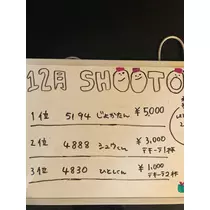 12月 SHOOTO
1位 5194 じょかたん ¥5,000
2位 4888 シュウくん ¥3,000
テキーラ1杯
3位 4830 ひとしくん ¥1,000
テキーラ2杯